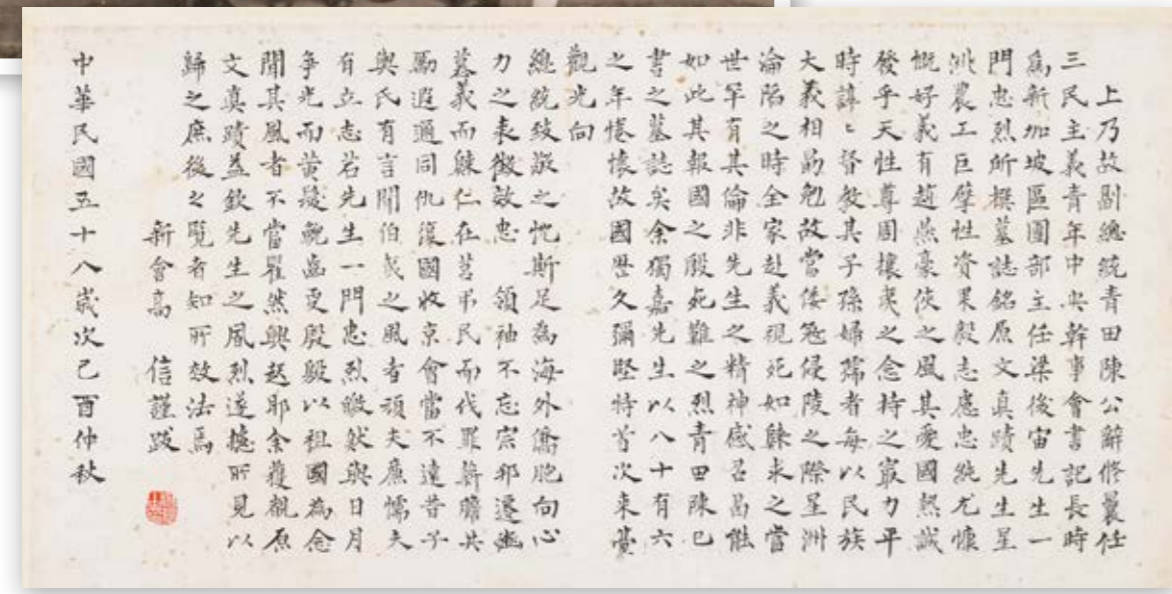 上乃故副總統青田陳公辭修曩任
三民主義青年中央幹事會書記長時
為新加坡區團部主任梁後宙先生一
門忠烈所撰墓誌銘原文真蹟先生星
洲農工巨擘性資果毅志慮忠純尤慷
慨好義有趙燕豪俠之風其愛國熱誠
發乎天性尊周攘夷之念持之最力平
時諄〻督教其子孫婦孺者每以民族
大義相勗勉故當倭寇侵陵之際星洲
淪陷之時全家赴義視死如歸求之當
世罕有其倫非先生之精神感召曷能
如此其報國之殷死難之烈青田陳已
書之墓誌矣余獨嘉先生以八十有六
之年惓懷故國歷久彌堅特首次來臺
觀光向
總統致敬之忱斯足為海外僑胞向心
力之表徵效忠 領袖不忘宗邦遂
慕義而歸仁在莒弔民而伐罪薪膽共
勵遐邇同仇復國收京會當不遠昔子
輿氏有言聞伯夷之風者頑夫廉懦夫
有立志若先生一門忠烈皦然與日月
爭光而黃髮鮐齒更殷殷以祖國為念
聞其風者不當瞿然興起耶余獲覩原
文真蹟益欽先生之風烈遂攄所見以
歸之庶後之覽者知所效法焉
新會高 信謹跋
中華民國五十八歲次己酉仲秋